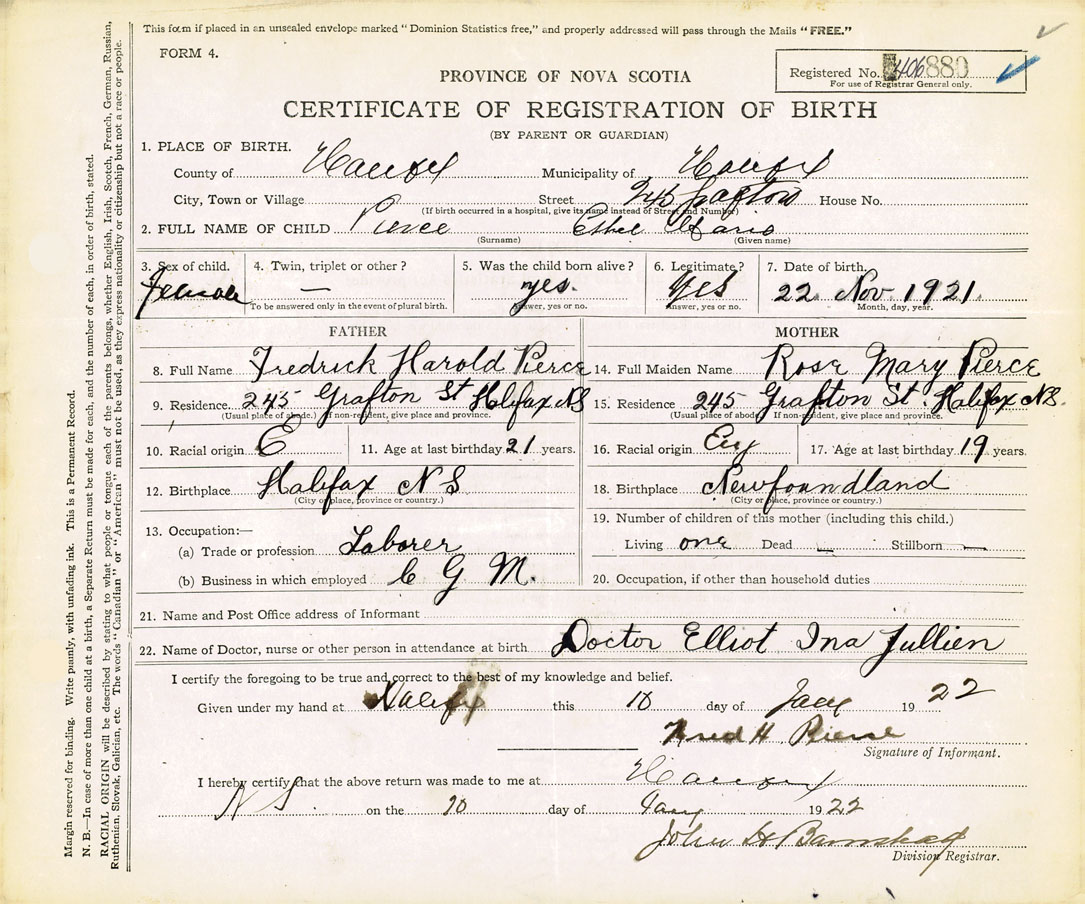 This form if placed in an unsealed envelope marked "Dominion Statistics free," and properly addressed will pass through the Mails "FREE."
FORM 4.
Registered No. 406880
For use of Registrar General only.
PROVINCE OF NOVA SCOTIA
CERTIFICATE OF REGISTRATION OF BIRTH
(BY PARENT OR GUARDIAN)
1. PLACE OF BIRTH.
County of Halifax Municipality of Halifax
City, Town or Village Street 245 Grafton House No.
(If birth occurred in a hospital, give its name instead of Street and Number)
2. FULL NAME OF CHILD Pierce Ethel
(Surname) (Given name)
3. Sex of child. 4. Twin, triplet or other? 5. Was the child born alive? 6. Legitimate? 7. Date of birth.
Female — yes. Yes 22 Nov. 1921.
To be answered only in the event of plural birth. Answer, yes or no. Answer, yes or no. Month, day, year.
FATHER
8. Full Name Fredrick Harold Pierce
9. Residence 245 Grafton St Halifax NS
(Usual place of abode.) If non-resident, give place and province.
10. Racial origin E 11. Age at last birthday 21 years.
12. Birthplace Halifax N S
(City or place, province or country.)
13. Occupation:—
(a) Trade or profession Laborer
(b) Business in which employed C G M.
MOTHER
14. Full Maiden Name Rose Mary Pierce
15. Residence 245 Grafton St. Halifax NS.
(Usual place of abode) If non-resident, give place and province.
16. Racial origin 17. Age at last birthday 19 years.
18. Birthplace Newfoundland
(City or place, province or country.)
19. Number of children of this mother (including this child.)
Living one Dead — Stillborn —
20. Occupation, if other than household duties
21. Name and Post Office address of Informant
22. Name of Doctor, nurse or other person in attendance at birth Doctor Elliot Ina Jullien
I certify the foregoing to be true and correct to the best of my knowledge and belief.
Given under my hand at Halifax this 10 day of Jany 1922
Fred H. Pierce
Signature of Informant.
I hereby certify that the above return was made to me at Halifax
N S on the 10 day of Jany 1922
John H Barnstead
Division Registrar.
Margin reserved for binding. Write plainly, with unfading ink. This is a Permanent Record.
N. B.—In case of more than one child at a birth, a Separate Return must be made for each, and the number of each, in order of birth, stated.
RACIAL ORIGIN will be described by stating to what people or tongue each of the parents belongs, whether English, Irish, Scotch, French, German, Russian,
Ruthenian, Slovak, Galician, etc. The words "Canadian" or "American" must not be used, as they express nationality or citizenship but not a race or people.